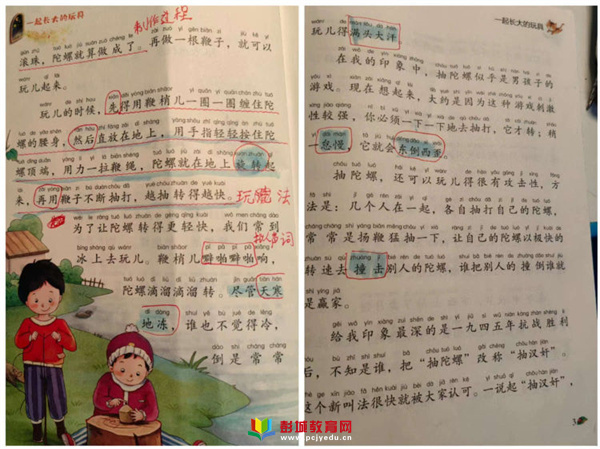 一起长大的玩具
制作过程
滚珠，陀螺就算做成了。再做一根鞭子，就可以
玩儿起来。
玩儿的时候，先得用鞭梢儿一圈一圈缠住陀
螺的腰身，然后直放在地上，用手指轻轻按住陀
螺顶端，用力一拉鞭绳，陀螺就在地上旋转起
来，再用鞭子不断抽打，越抽转得越快。
玩儿法
为了让陀螺转得更轻快，我们常到
拟声词
冰上去玩儿。鞭梢儿噼啪噼啪响，
陀螺滴溜滴溜转。尽管天寒
地冻，谁也不觉得冷，
倒是常常
一起长大的玩具
玩儿得满头大汗。
在我的印象中，抽陀螺似乎是男孩子的
游戏。现在想起来，大约是因为这种游戏刺激
性较强，你必须一下一下地去抽打，它才转；稍
一怠慢，它就会东倒西歪。
抽陀螺，还可以玩儿得很有攻击性，方
法是：几个人在一起，各自抽打自己的陀螺，
常常是扬鞭猛抽一下，让自己的陀螺以极快的
转速去撞击别人的陀螺，谁把别人的撞倒谁就
是赢家。
给我印象最深的是一九四五年抗战胜利
后，不知是谁，把“抽陀螺”改称“抽汉奸”。
这个新叫法很快就被大家认可。一说起“抽汉奸”，
3
彭城教育网
www.pcjyedu.cn